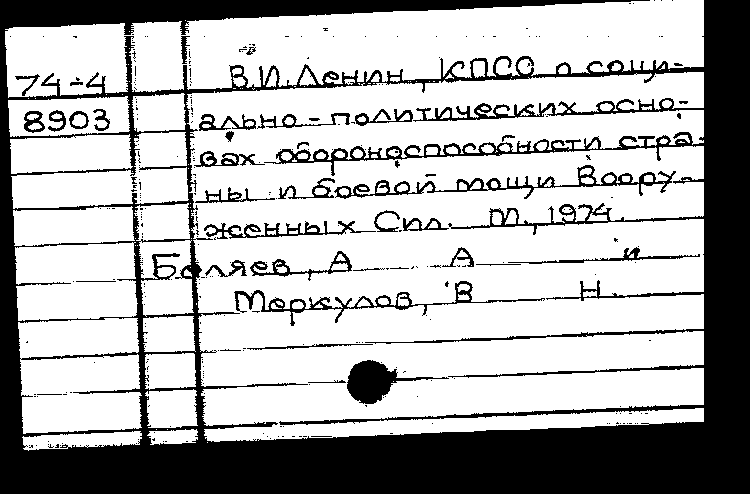 74-4 В.И. Ленин, КПСС о соци-
8903 ально-политических осно-
вах обороноспособности стра-
ны и боевой мощи Воору-
женных Сил. М., 1974.
Беляев, А А и
Меркулов, В Н.